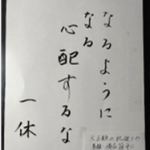 なるように
なる
心配するな
一休